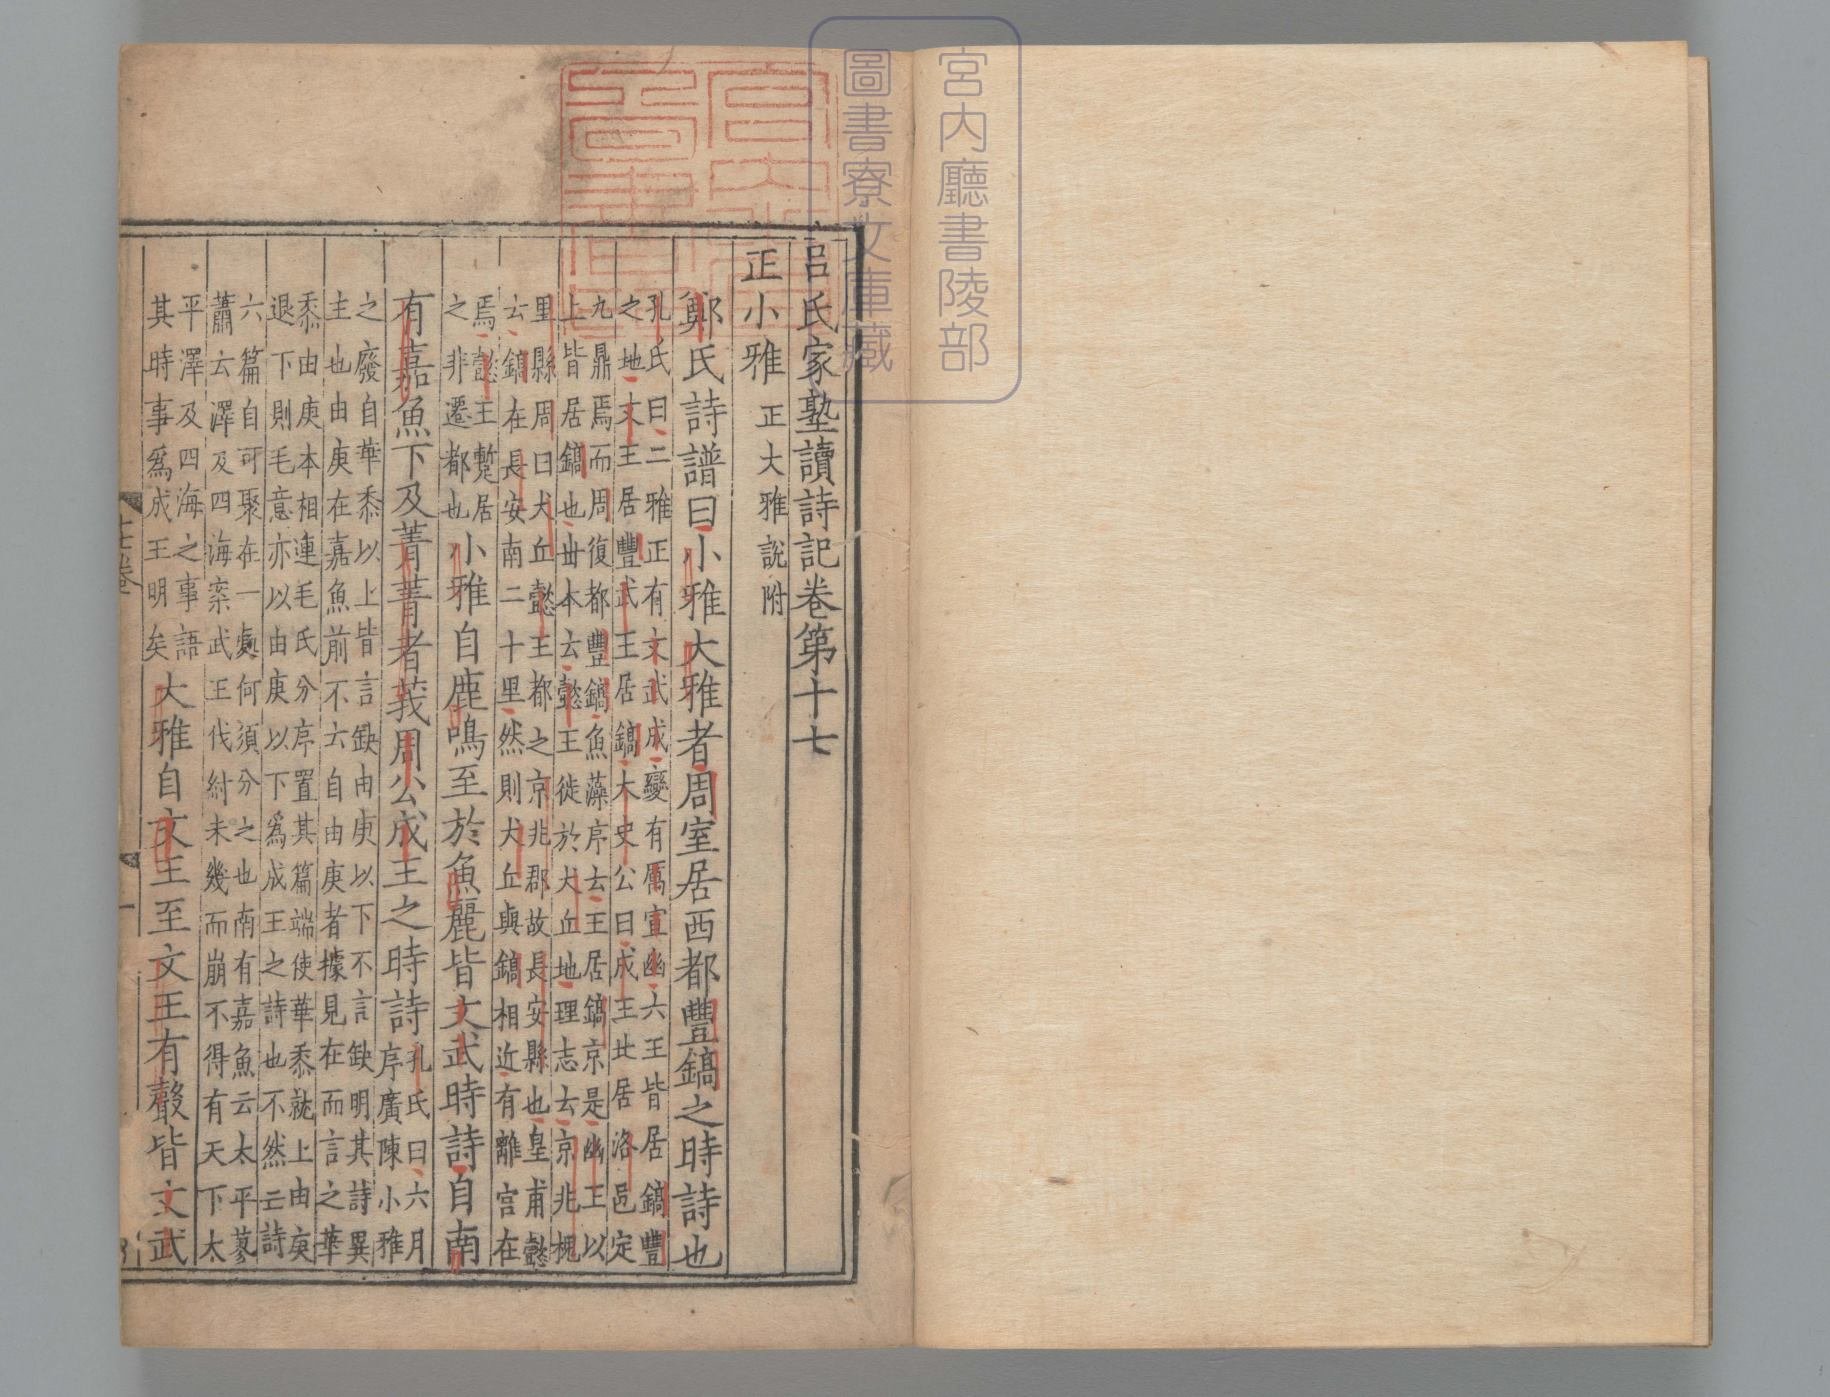 宮内廳書陵部
圖書寮文庫藏
呂氏家塾讀詩記卷第十七
正小雅 正大雅說附
鄭氏詩譜曰小雅大雅者周室居西都豐鎬之時詩也
孔氏曰二雅正有文武成變有厲宣幽六王皆居鎬豐
之地文王居豐武王居鎬大史公曰成王北居洛邑定
九鼎焉而周復都豐鎬魚藻序云王居鎬京是幽王以
上皆居鎬也丗本云懿王徙於犬丘地理志云京兆槐
里縣周曰犬丘懿王都之京兆郡故長安縣也皇甫懿
云鎬在長安南二十里然則犬丘與鎬相近有離宮在
焉懿王蹔居
之非遷都也
小雅自鹿鳴至於魚麗皆文武時詩自南
有嘉魚下及菁菁者莪周公成王之時詩
孔氏曰六月
序廣陳小雅
之廢自華黍以上皆言缺由庚以下不言缺明其詩異
主也由庚在嘉魚前不云自由庚者據見在而言之華
黍由庚本相連毛氏分序置其篇端使華黍就上由庚
退下則毛意亦以由庚以下爲成王之詩也不然亡詩
六篇自可聚在一處何須分之也南有嘉魚云太平蓼
蕭云澤及四海案武王伐紂未幾而崩不得有天下太
平澤及四海之事語
其時事爲成王明矣
大雅自文王至文王有聲皆文武